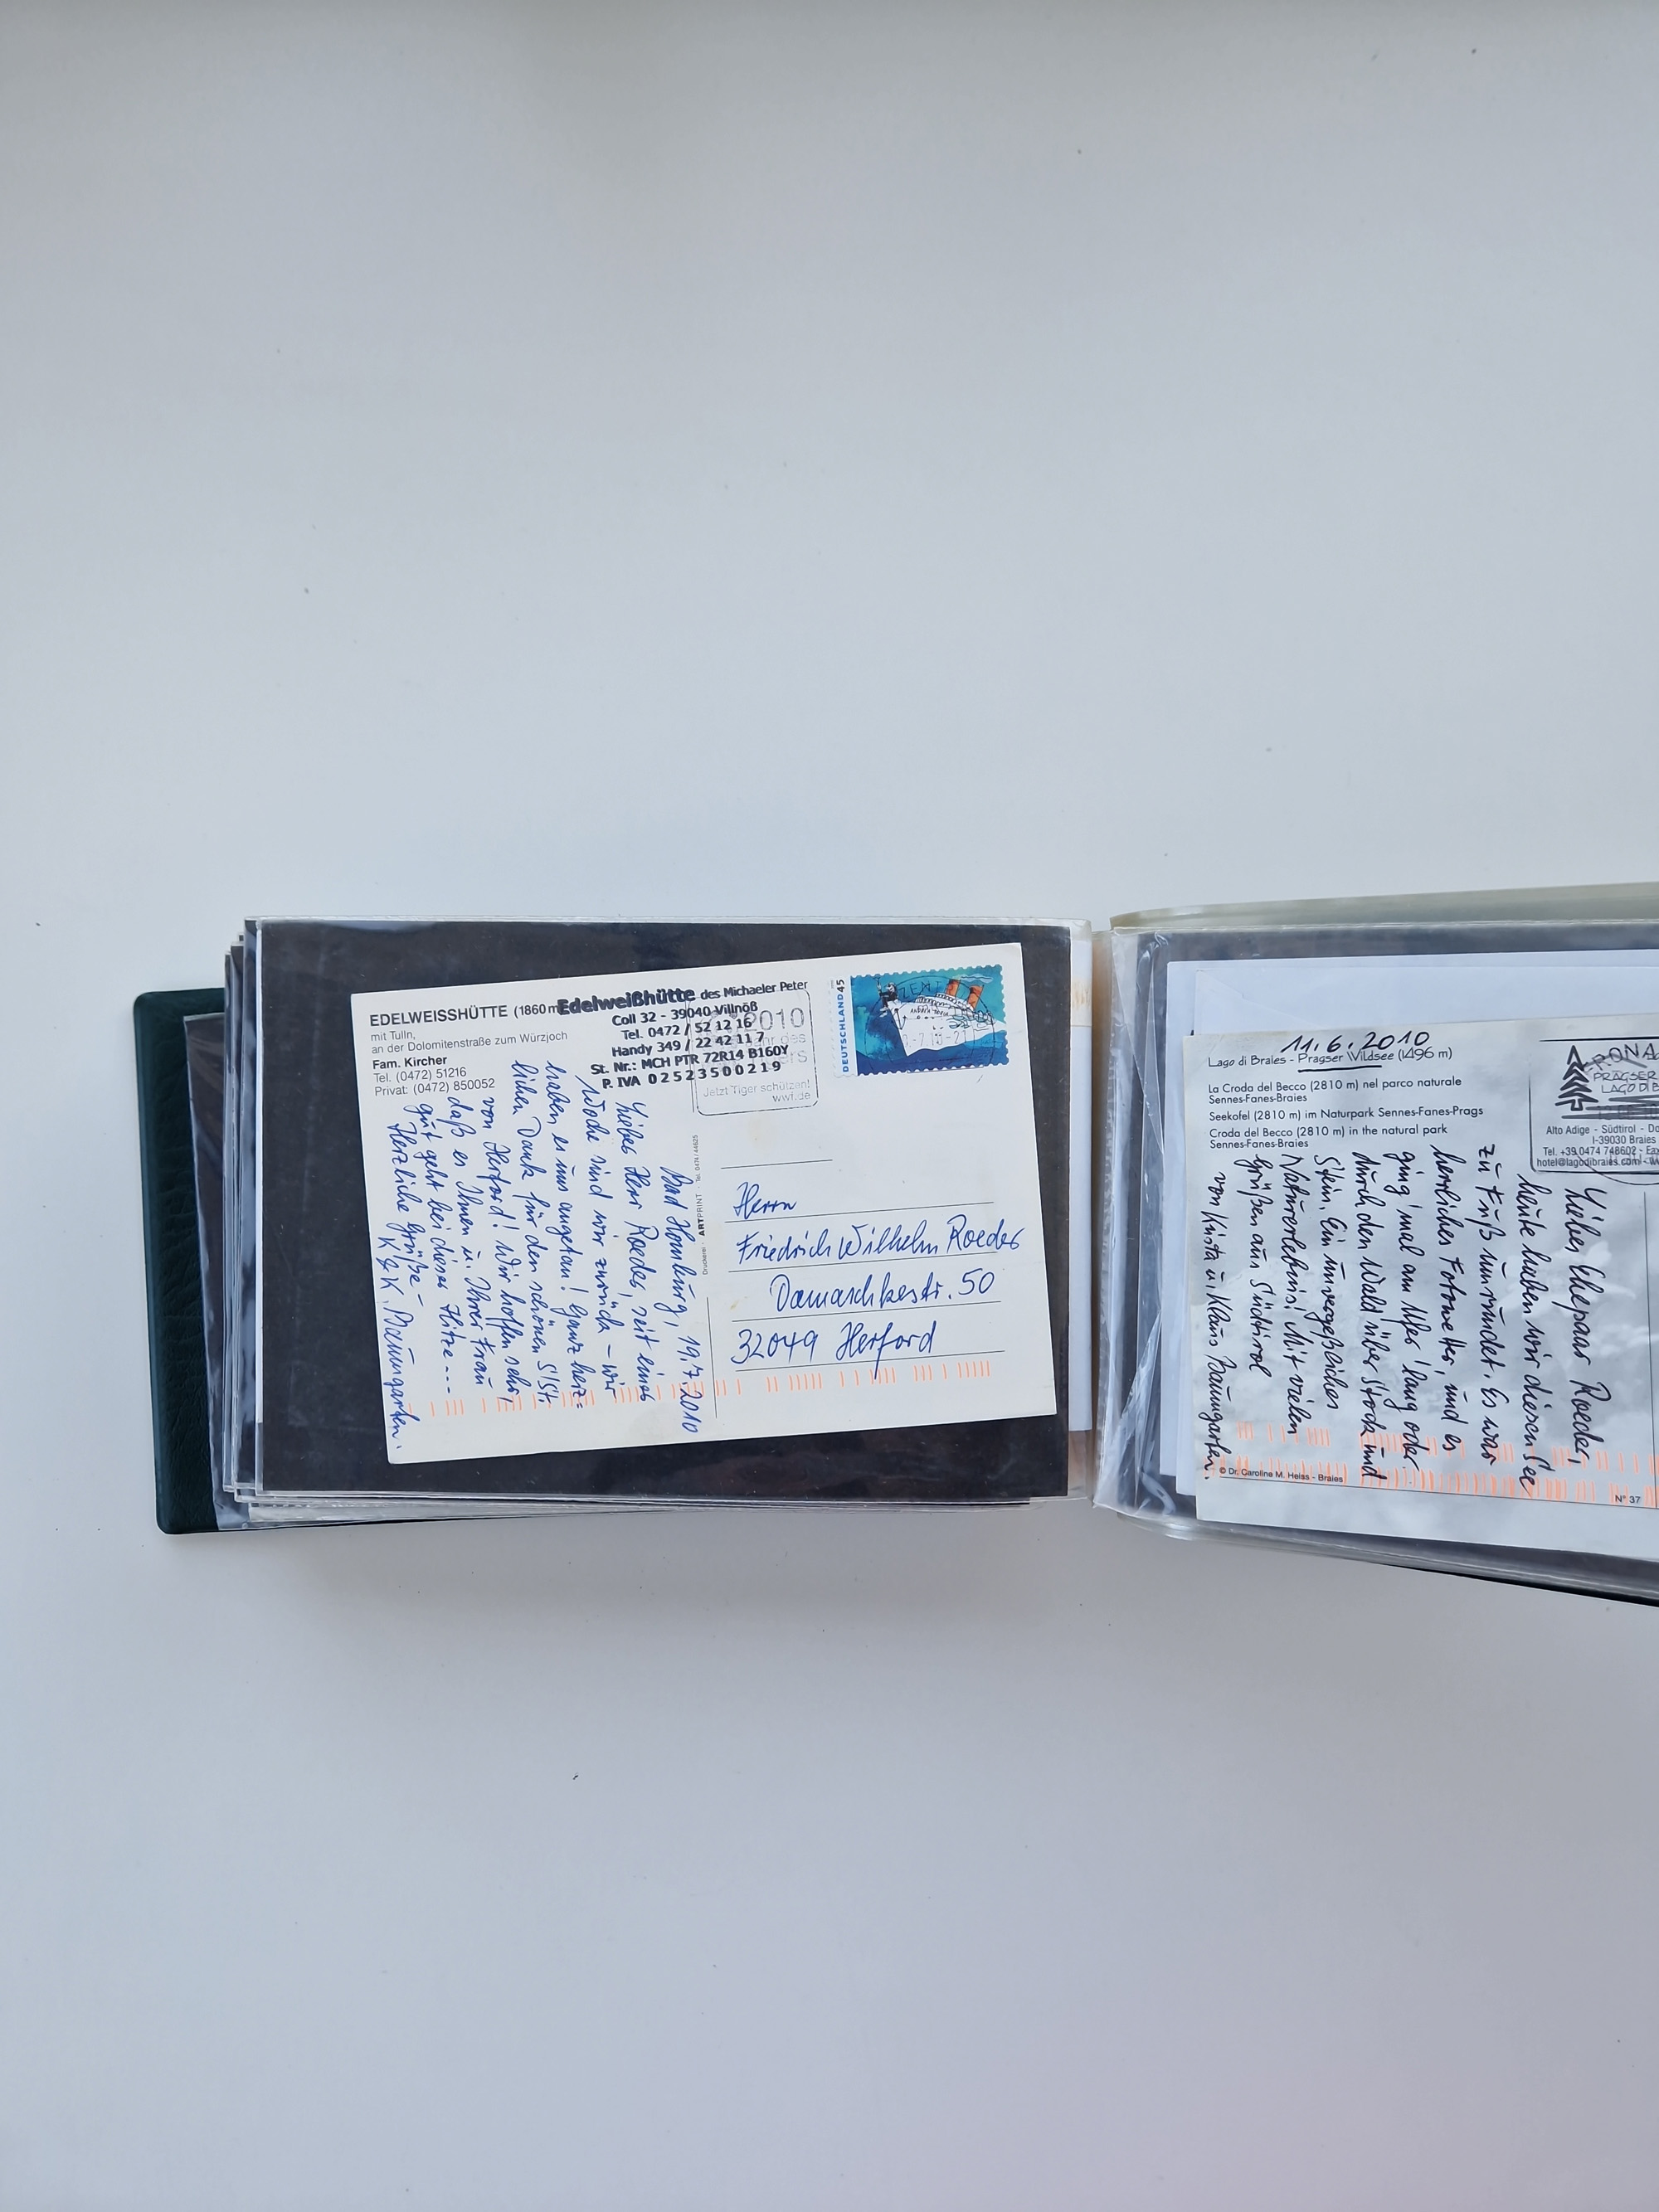 EDELWEISSHÜTTE (1860 m
mit Tulln,
an der Dolomitenstraße zum Würzjoch
Fam. Kircher
Tel. (0472) 51216
Privat: (0472) 850052
Edelweißhütte des Michaeler Peter
Coll 32 - 39040 Villnöß
Tel. 0472 / 52 12 16
Handy 349 / 22 42 11 7
St. Nr.: MCH PTR 72R14 B160Y
P. IVA 02523500219
2010
Jahr des
Jetzt Tiger schützen!
wwf.de
DEUTSCHLAND 45
Bad Homburg, 19.7.2010
Lieber Herr Roeder, seit einer
Woche sind wir zurück - wir
haben es uns angetan! Ganz herz=
lichen Dank für den schönen SISt.
von Herford! Wir hoffen sehr,
daß es Ihnen u. Ihrer Frau
gut geht bei dieser Hitze ---
Herzliche Grüße -
K. & K. Baumgarten.
Druckerei · ARTPRINT · Tel. 0474/44625
Herrn
Friedrich Wilhelm Roeder
Damaschkestr. 50
32049 Herford
11.6.2010
Lago di Braies - Pragser Wildsee (1496 m)
La Croda del Becco (2810 m) nel parco naturale
Sennes-Fanes-Braies
Seekofel (2810 m) im Naturpark Sennes-Fanes-Prags
Croda del Becco (2810 m) in the natural park
Sennes-Fanes-Braies
PRAGSER
LAGO DI B
Alto Adige - Südtirol - Do
I-39030 Braies
Tel. +39 0474 748602 - Fax
hotel@lagodibraies.com - w
Liebes Ehepaar Roeder,
heute haben wir diesen See
zu Fuß umrundet. Es war
herrliches Fotowetter, und es
ging mal am Ufer lang oder
durch den Wald über Stock und
Stein. Ein unvergeßliches
Naturerlebnis! Mit vielen
Grüßen aus Südtirol
von Krista u. Klaus Baumgarten.
© Dr. Caroline M. Heiss - Braies
N° 37